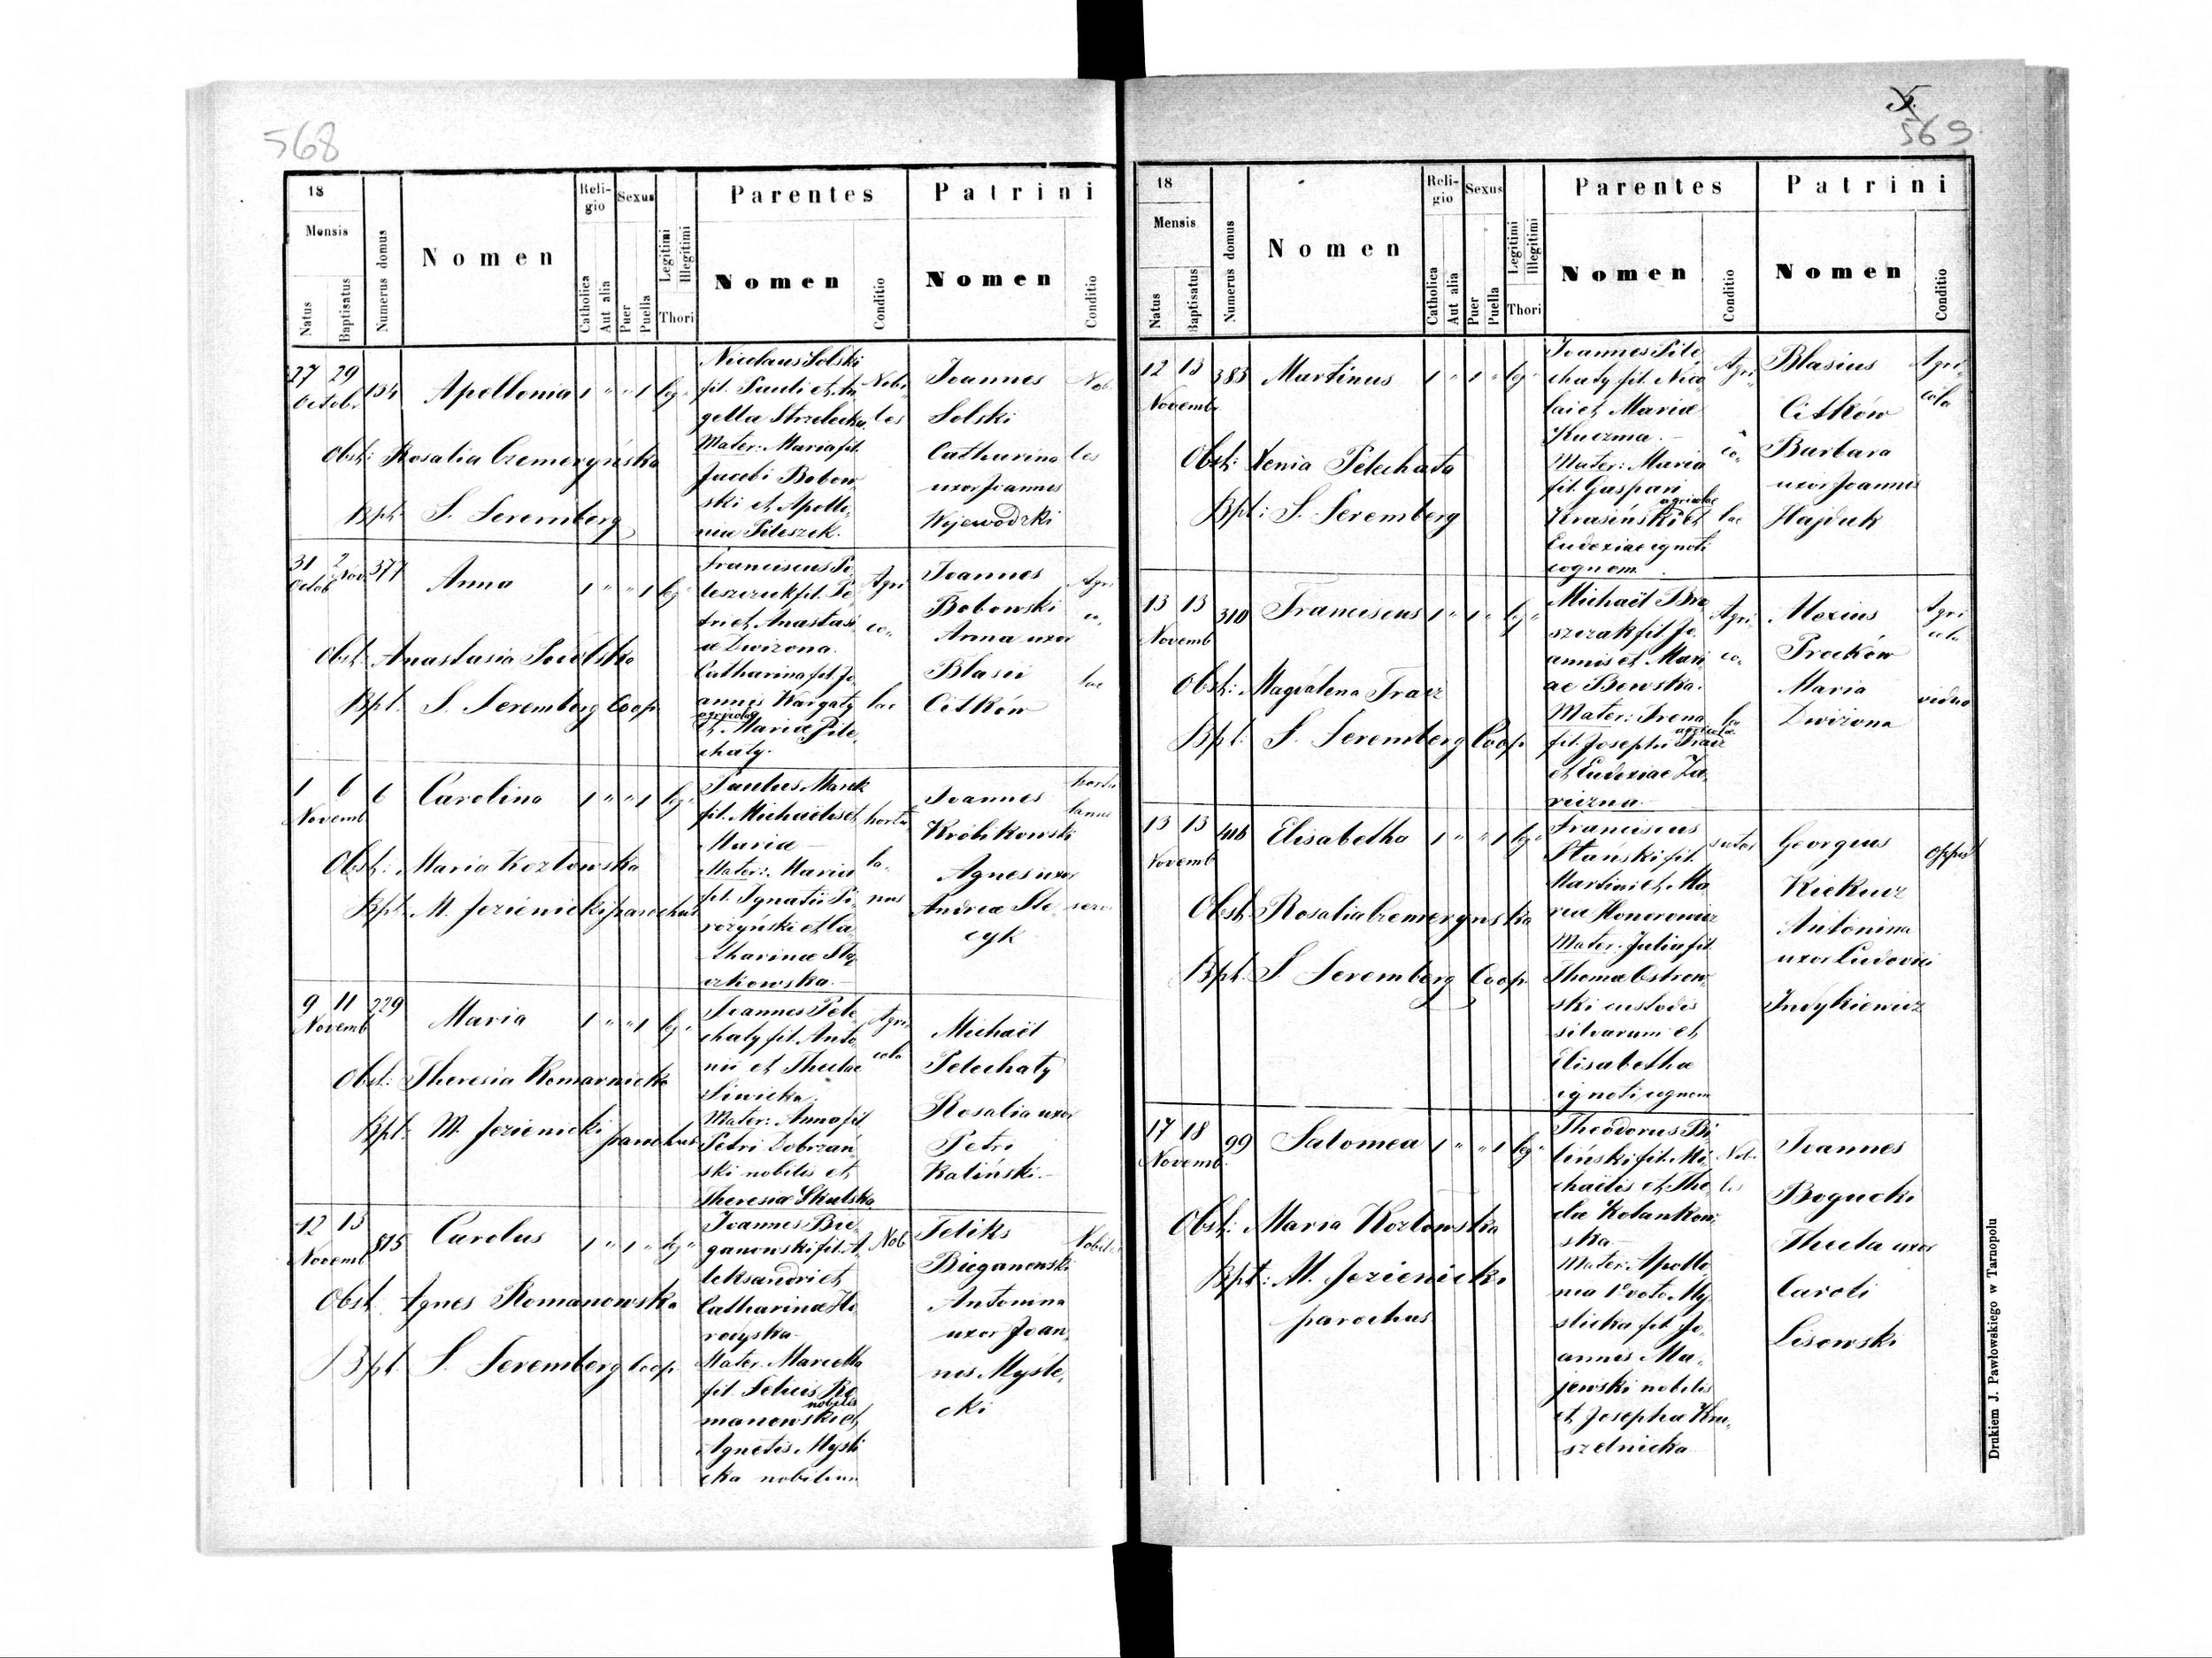 568
18
Mensis
Natus
Baptisatus
Numerus domus
Nomen
Religio
Catholica
Aut alia
Sexus
Puer
Puella
Legitimi
Illegitimi
Thori
Parentes
Nomen
Conditio
Patrini
Nomen
Conditio
27 29 134 Apollonia 1 " " 1 leg"
Octobr
Obst: Rosalia Czemeryńska
Bpt. S. Seremberg
Nicolaus Solski
fil. Pauli et An
gella Strzelecka.
Mater: Maria fil.
Jacobi Bobow
ski et Apollo
nia Pileszek.
Nobi
les
Joannes
Solski
Catharina
uxor Joannes
Wojewodzki
Nob
les
31 2 Nov. 377 Anna 1 " " 1 leg"
Octob
Obst: Anastasia
Bpt. S. Seremberg Coop
Franciscus Pi
leszczuk fil. Pe
tri et Anastasi
a Dwizona.
Catharina fil. Jo
annis Wargaty
agricola
et Maria Pile
chaty.
Agri
co
lae
Joannes
Bobowski
Anna uxor
Blasii
Citków
Agri
co
lae
1 6 6 Carolina 1 " " 1 leg"
Novemb
Obst: Maria Kozlowska
Bpt. M. Jezienicki parochus
Paulus Marek
fil. Michaelis et
Maria
Mater: Maria
fil. Ignatii Pi
rożyński et Ca
tharina
czkowska.
hortu
la
nus
Joannes
Króhkowski
Agnes uxor
Andrea Ste
cyk
hortu
lanus
9 11 229 Maria 1 " " 1 leg"
Novemb
Obst: Theresia Komarnicka
Bpt. M. Jezienicki parochus
Joannes Pele
chaty fil. Anto
nii et Theclae
Siwicka.
Mater: Anna fil
Petri Dobrzań
ski nobilis et
Theresia Skulska
Agri
cola
Michaël
Pelechaty
Rosalia uxor
Petri
Kaliński.
12 13 815 Carolus 1 " 1 " leg"
Novemb
Obst. Agnes Romanowska
Bpt. S. Seremberg Coop
Joannes Bie
ganowski fil. A
leksandri et
Catharinae Ho
rodyska
Mater. Marcella
fil. Felicis Ro
nobilis
manowski et
Agnetis Mysli
cka nobilium
Nob
Feliks
Bieganowski
Antonina
uxor Joan
nis Myśle
cki
Nobiles
569
18
Mensis
Natus
Baptisatus
Numerus domus
Nomen
Religio
Catholica
Aut alia
Sexus
Puer
Puella
Legitimi
Illegitimi
Thori
Parentes
Nomen
Conditio
Patrini
Nomen
Conditio
12 13 383 Martinus 1 " 1 " leg"
Novemb
Obst: Xenia Pelechata
Bpt: S. Seremberg
Joannes Pile
chaty fil. Nico
lai et Maria
Kuczma.
Mater: Maria
fil. Gaspari
agricolae
Krasiński et
Eudoxiae ignoti
cognom.
Agri
co
lae
Blasius
Citków
Barbara
uxor Joannis
Hajduk
Agri
cola
13 13 310 Franciscus 1 " 1 " leg"
Novemb
Obst: Magdalena Fracz
Bpt: S. Seremberg Coop
Michaël Bro
szczak fil. Jo
annis et Mari
ae Bewska.
Mater: Irena
agricolae
fil. Josephi Fracz
et Eudoxiae Za
riczna
Agri
co
la
Alexius
Proćków
Maria
Dwizona
Agri
cola
vidua
13 13 Elisabetha 1 " " 1 leg"
Novemb
Obst. Rosalia Czemerynska
Bpt. S Seremberg Coop
Franciscus
Stański fil.
Martini et Ma
ria Honorowicz
Mater. Julia fil
Thoma Ostrow
ski custodis
silvarum et
Elisabetha
ignoti cognom
sutor
Georgius
Kiekucz
Antonina
uxor Ludovici
Indykiewicz
17 18 99 Salomea 1 " " 1 leg"
Novemb.
Obst: Maria Kozlowska
Bpt: M. Jezienicki
parochus
Theodorus Bi
liński fil. Mi
chaëlis et The
cla Kolankow
ska
Mater: Apollo
nia 1° voto My
slicka fil. Jo
annis Ma
jewski nobilis
et Josepha Kru
szelnicka
Nob.
les
Joannes
Bogucki
Thecla uxor
Caroli
Lisowski
Drukiem J. Pawłowskiego w Tarnopolu